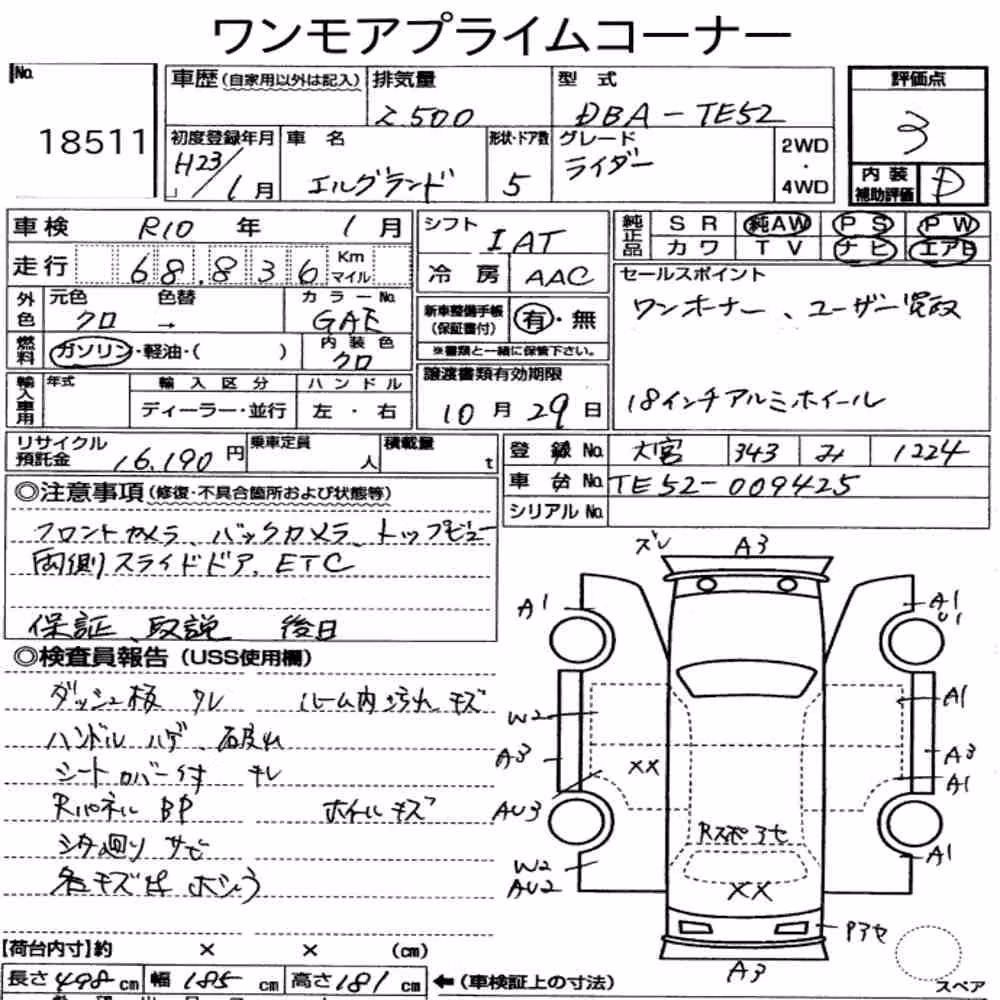 ワンモアプライムコーナー
No. 18511
車歴 (自家用以外は記入)
排気量 2.500
型 式 DBA-TE52
評価点 3
初度登録年月 H23/1月
車 名 エルグランド
形状・ドア数 5
グレード ライダー
2WD ・ 4WD
内装補助評価 D
車検 R10 年 1 月
シフト IAT
純正品 SR 純AW PS PW
カワ TV ナビ エアB
走行 68.836 Km マイル
冷房 AAC
セールスポイント
ワンホーナー、ユーザー買取
18インチアルミホイール
外色 元色 クロ → 色替
カラーNo. GAE
新車整備手帳 (保証書付) 有・無
※書類と一緒に保管下さい。
燃料 ガソリン・軽油・( )
内装色 クロ
輸入車用 年式 輸入区分 ハンドル
ディーラー・並行 左・右
譲渡書類有効期限
10月29日
リサイクル預託金 16.190円
乗車定員 人
積載量 t
登録No. 大宮 343 み 1224
車台No. TE52-009425
シリアルNo.
◎注意事項 (修復・不具合箇所および状態等)
フロントカメラ、バックカメラ、トップビュー
両側スライドドア、ETC
保証、取説 後日
◎検査員報告 (USS使用欄)
ダッシュ板 クレ ルーム内汚れ、キズ
ハンドル ハゲ、破れ
シートカバー付 キレ
Rパネル BP ホイルキズ
シタ廻り サビ
各キズ
ズレ A3
A1
A1
U1
W2
A1
A3
××
A3
A1
AU3
Rスポアセ
A1
W2
AU2
××
Pアセ
A3
【荷台内寸】約 × × (cm)
長さ498cm 幅 185 cm 高さ181cm ←(車検証上の寸法)
スペア